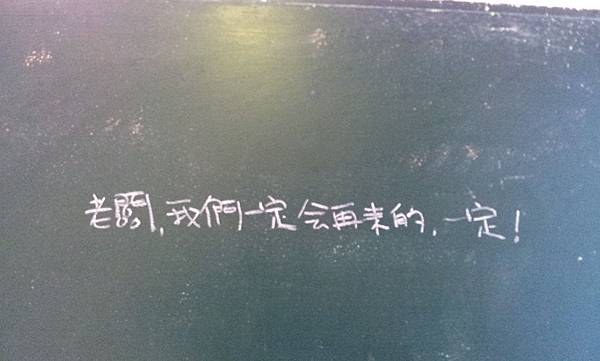 老闆,我們一定会再来的,一定!